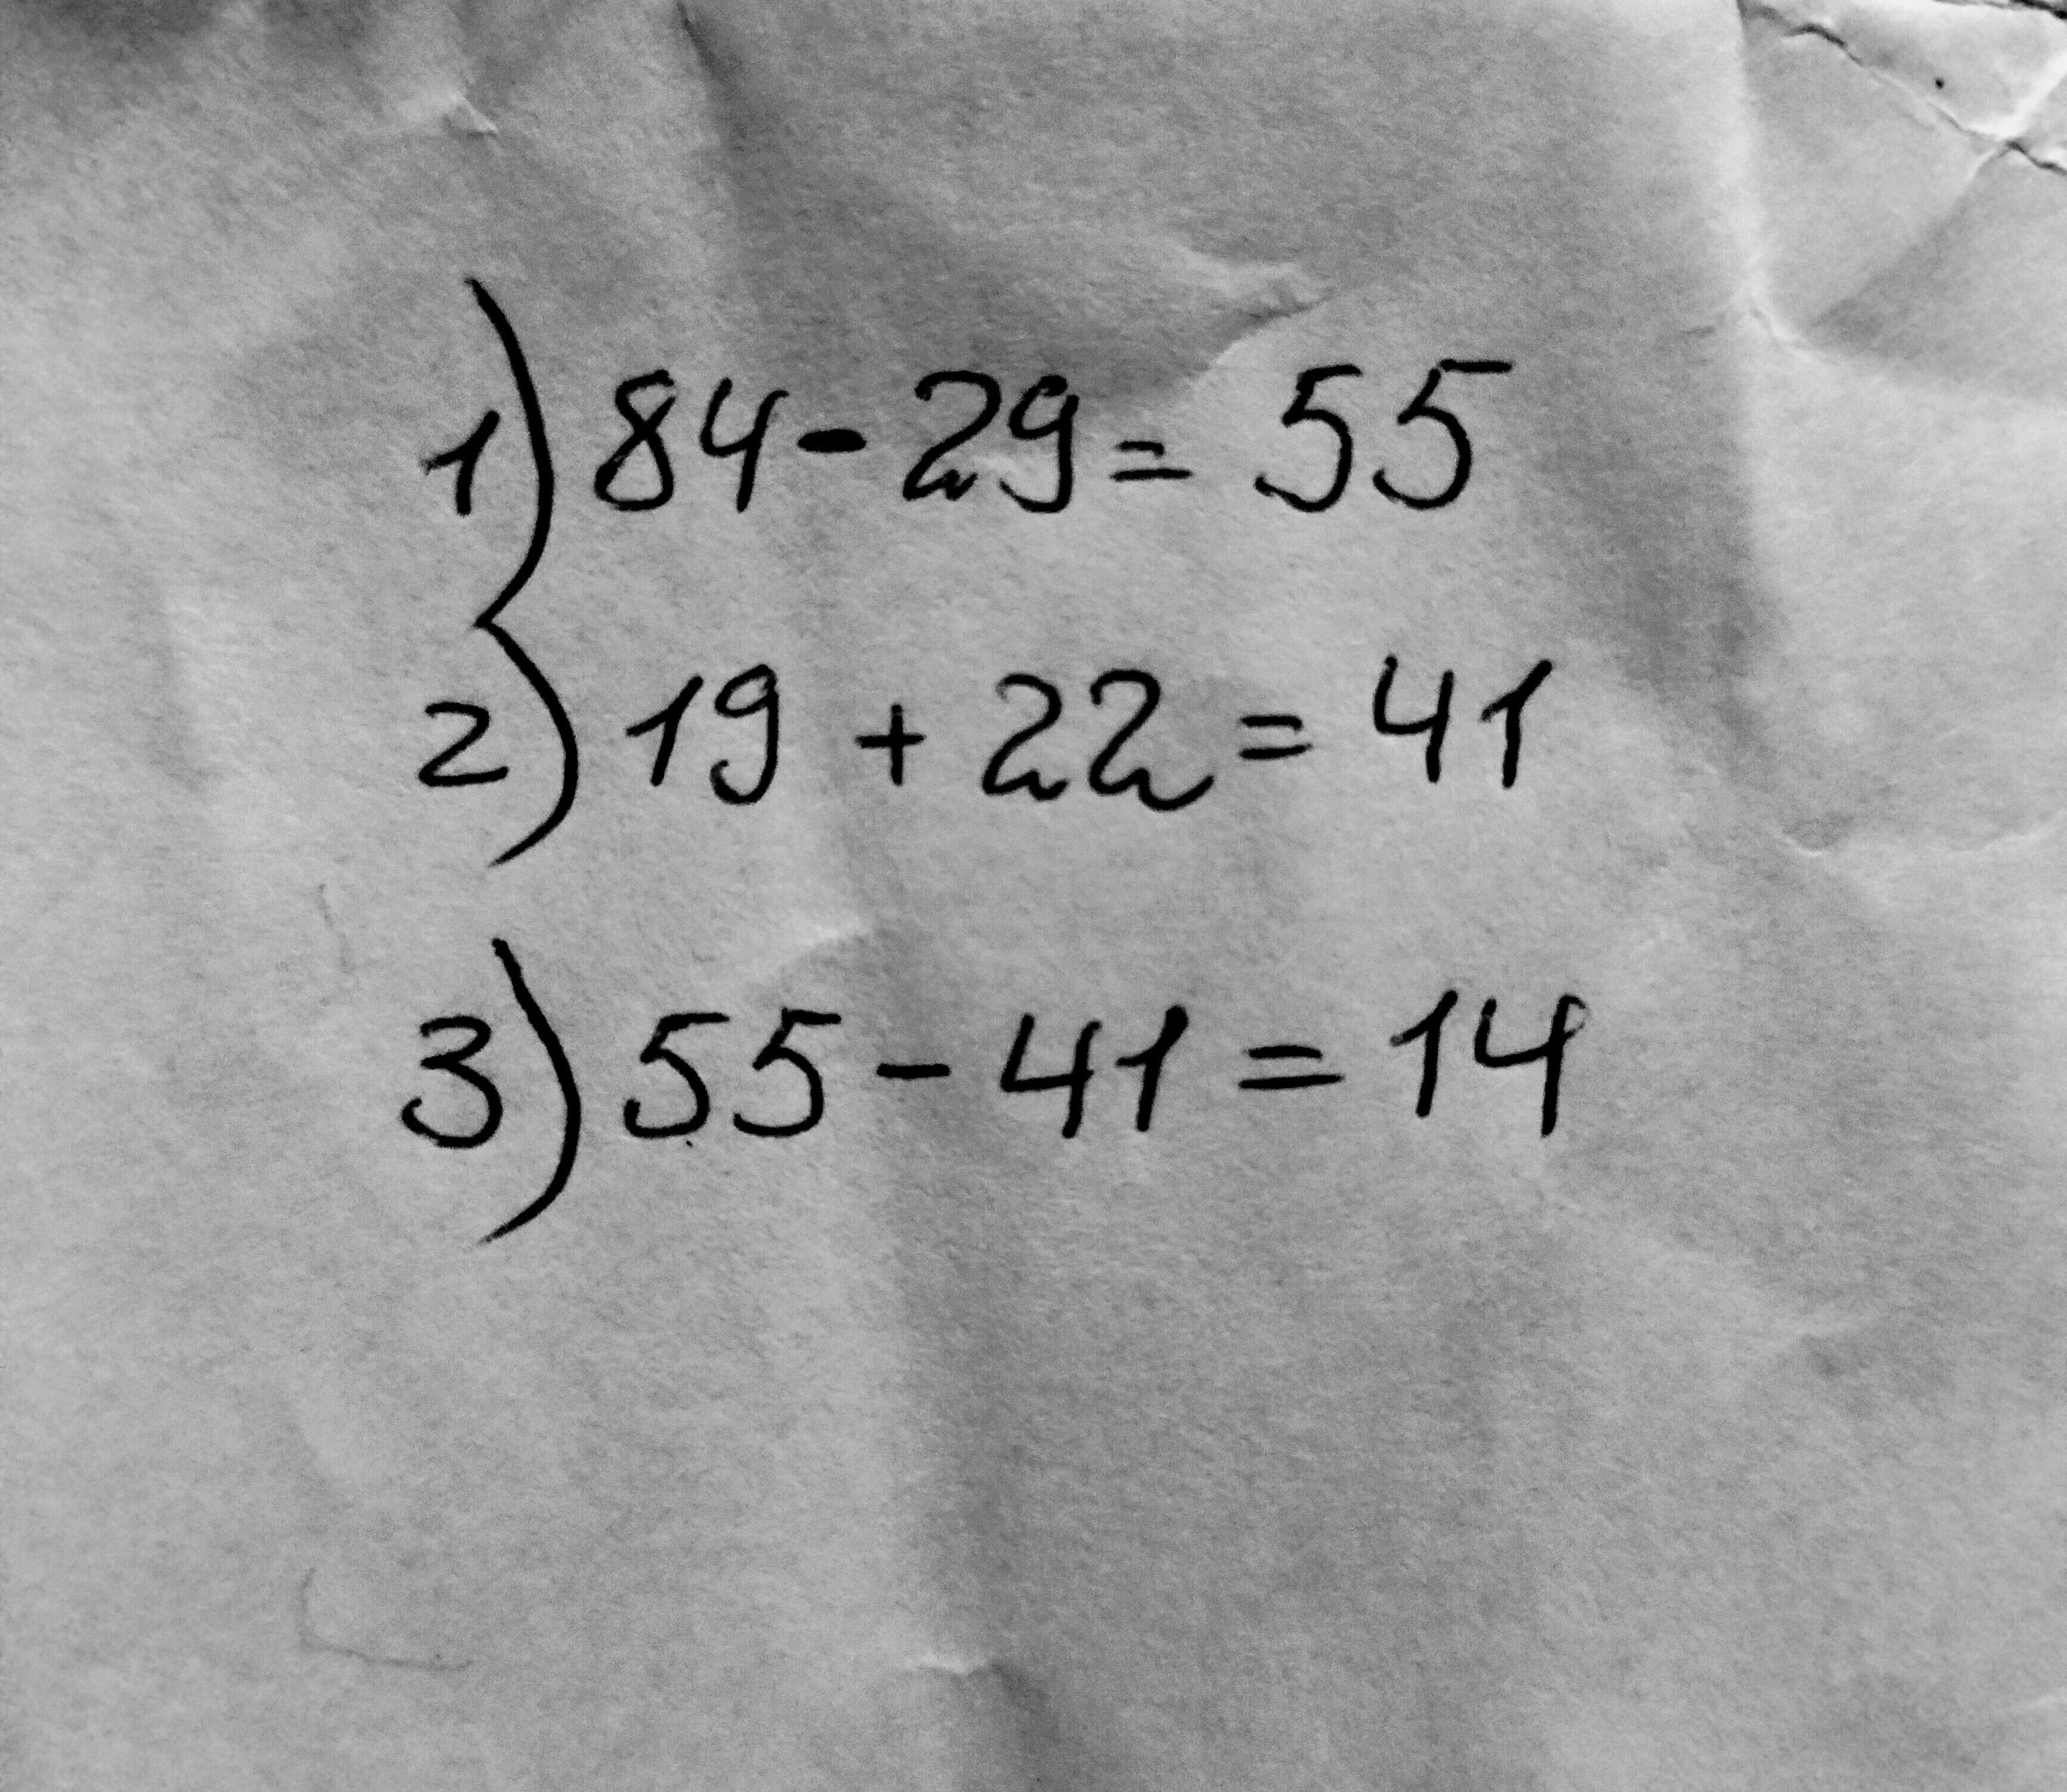 1) 84 - 29 = 55
2) 19 + 22 = 41
3) 55 - 41 = 14